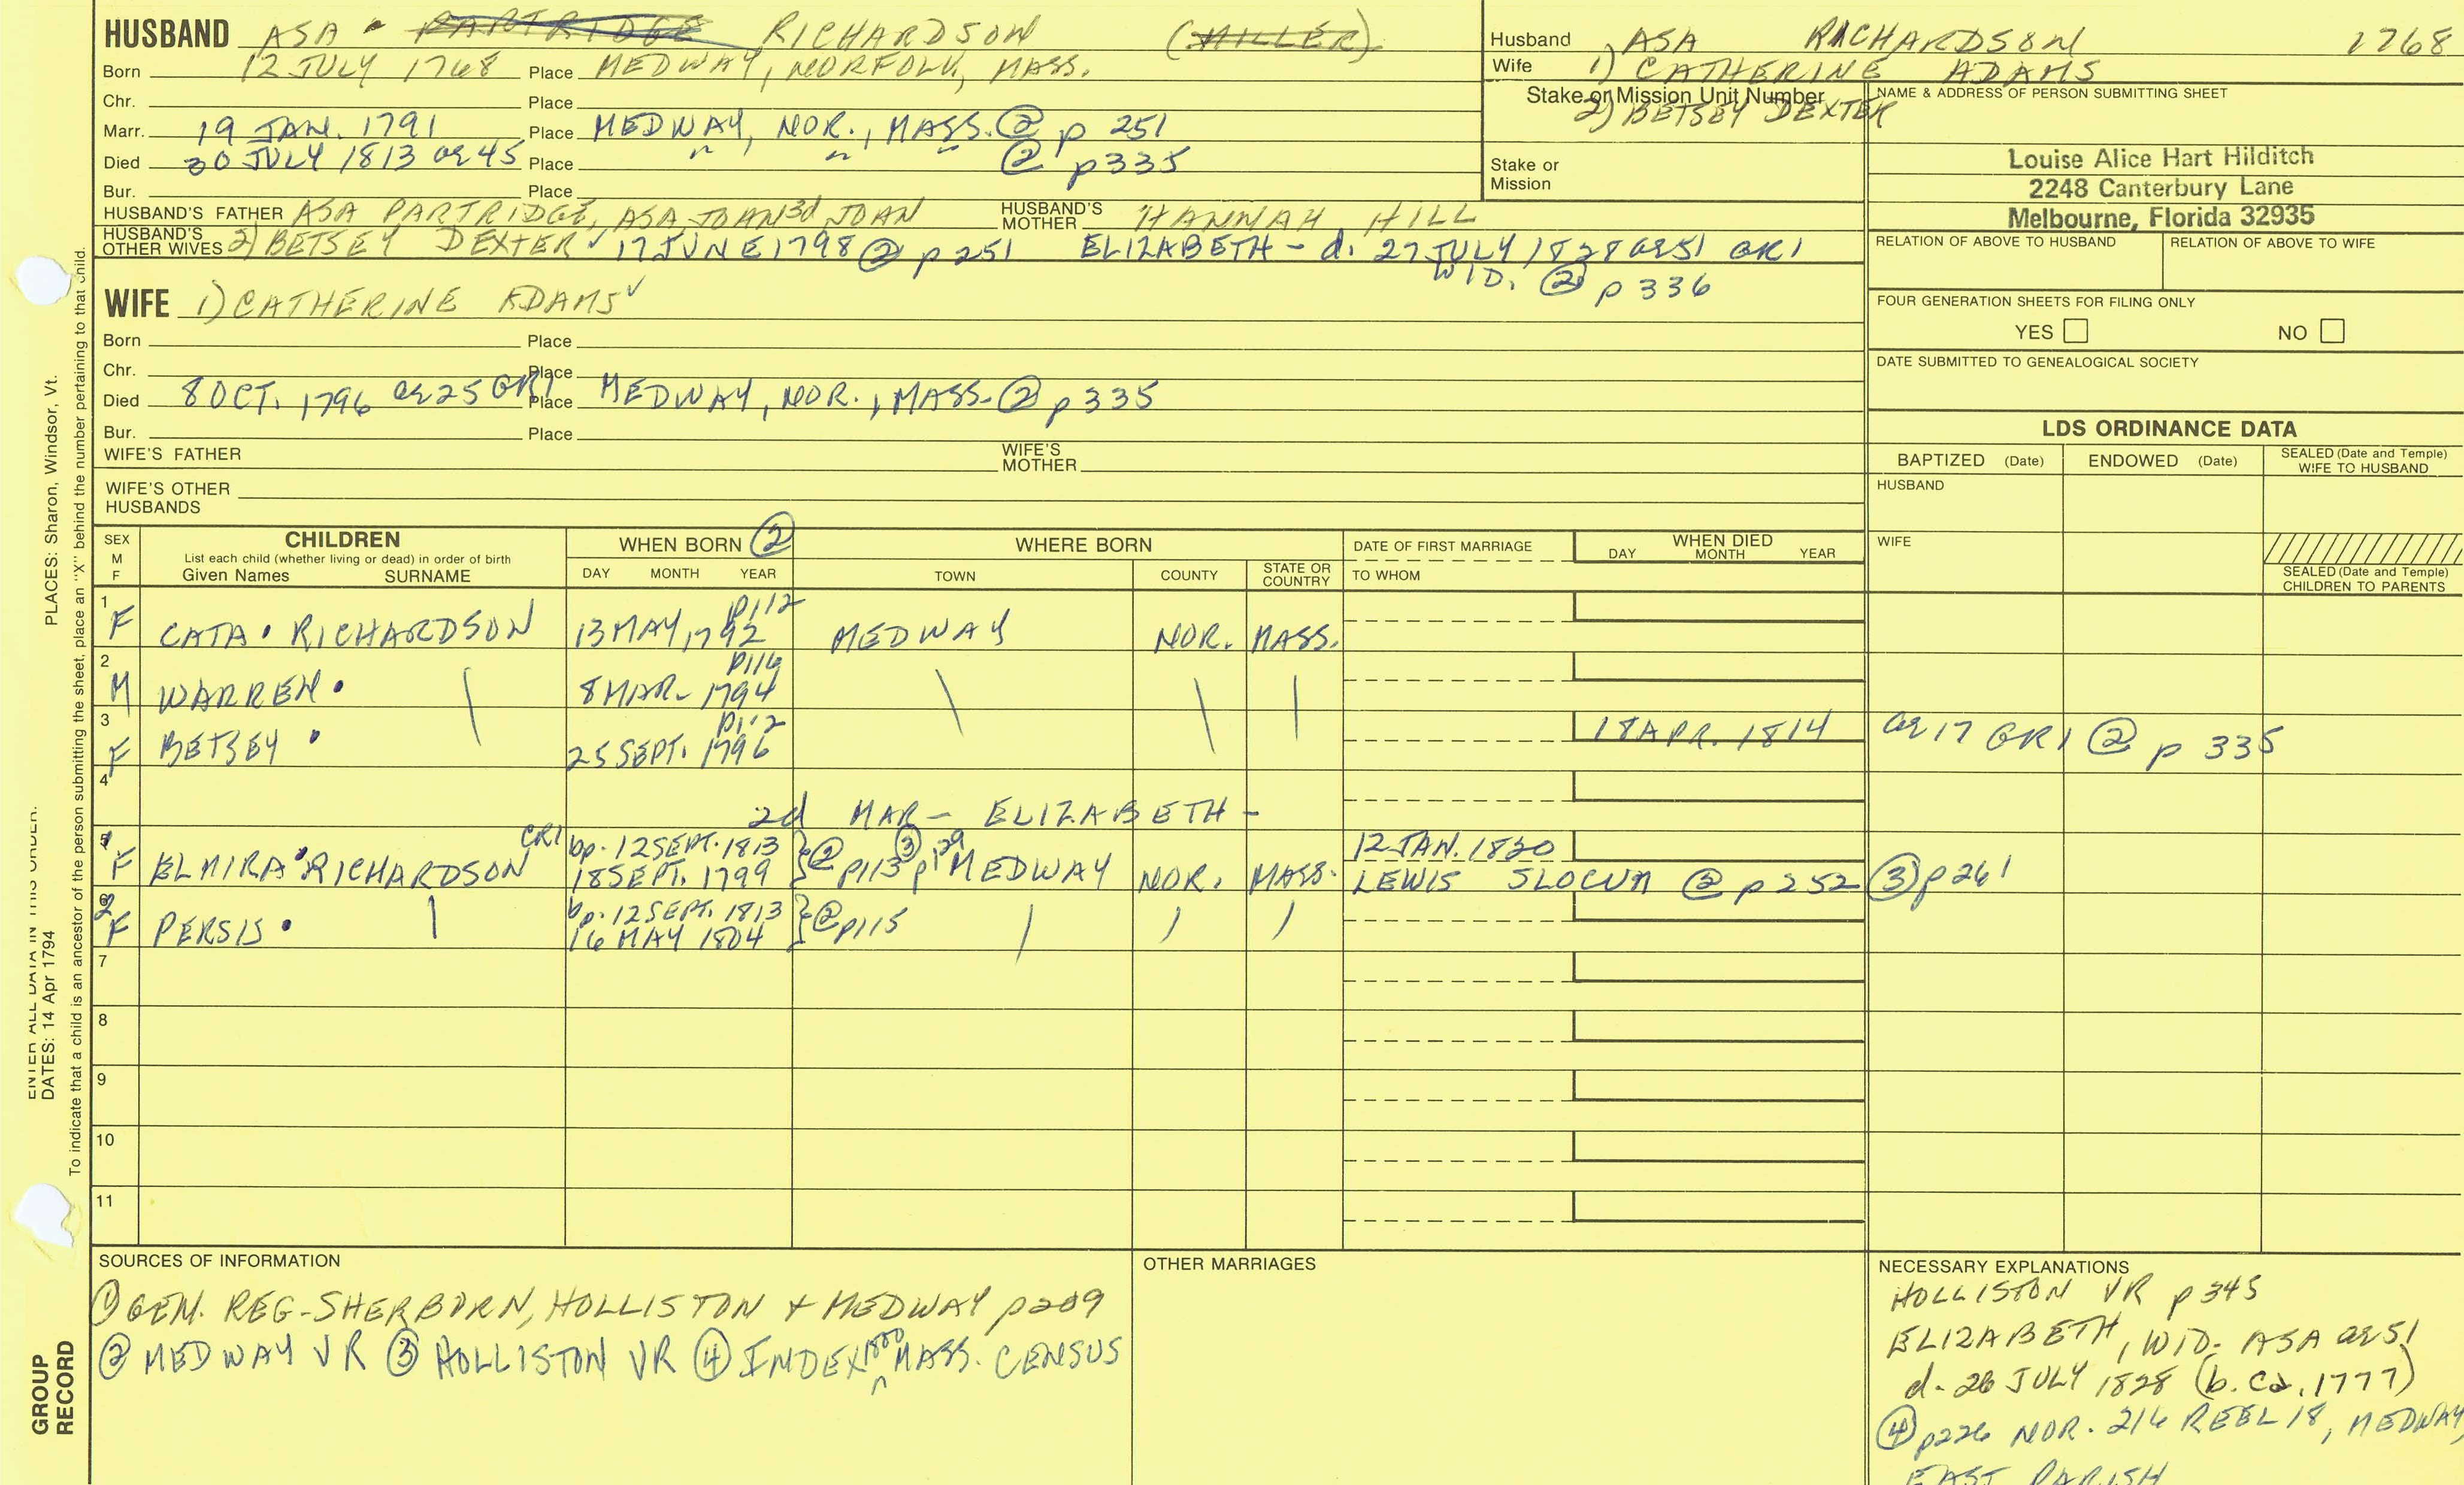 HUSBAND ASA PARTRIDGE RICHARDSON (MILLER)
Born 12 JULY 1768 Place MEDWAY, NORFOLK, MASS.
Chr. Place
Marr. 19 JAN. 1791 Place MEDWAY, NOR., MASS. ② p 251
Died 30 JULY 1813 ae 45 Place " " " ② p 335
Bur. Place
HUSBAND'S FATHER ASA PARTRIDGE, ASA JOHN 3d JOHN HUSBAND'S MOTHER HANNAH HILL
HUSBAND'S OTHER WIVES 2) BETSEY DEXTER ✓ 17 JUNE 1798 ② p 251 ELIZABETH - d. 27 JULY 1828 ae 51 GR1
WID. ② p 336
Husband 1) ASA RICHARDSON 1768
Wife 1) CATHERINE ADAMS
Stake or Mission Unit Number
2) BETSEY DEXTER
Stake or Mission
NAME & ADDRESS OF PERSON SUBMITTING SHEET
Louise Alice Hart Hilditch
2248 Canterbury Lane
Melbourne, Florida 32935
RELATION OF ABOVE TO HUSBAND RELATION OF ABOVE TO WIFE
FOUR GENERATION SHEETS FOR FILING ONLY
YES NO
DATE SUBMITTED TO GENEALOGICAL SOCIETY
WIFE 1) CATHERINE ADAMS ✓
Born Place
Chr. Place
Died 8 OCT. 1796 ae 25 GR1 Place MEDWAY, NOR., MASS. ② p 335
Bur. Place
WIFE'S FATHER WIFE'S MOTHER
WIFE'S OTHER HUSBANDS
LDS ORDINANCE DATA
BAPTIZED (Date) ENDOWED (Date) SEALED (Date and Temple) WIFE TO HUSBAND
HUSBAND
WIFE
SEALED (Date and Temple) CHILDREN TO PARENTS
SEX M F
CHILDREN
List each child (whether living or dead) in order of birth
Given Names SURNAME
WHEN BORN ②
DAY MONTH YEAR
WHERE BORN
TOWN COUNTY STATE OR COUNTRY
DATE OF FIRST MARRIAGE
TO WHOM
WHEN DIED
DAY MONTH YEAR
1 F CATA RICHARDSON 13 MAY, 1792 p112 MEDWAY NOR. MASS.
2 M WARREN 8 MAR. 1794 p116
3 F BETSEY 25 SEPT. 1796 p112 18 APR. 1814 ae 17 GR1 ② p 335
4
2d MAR - ELIZABETH -
5 1 F ELMIRA RICHARDSON CR1 bp. 12 SEPT. 1813 12 JAN. 1820
18 SEPT. 1799 ② p113 ③ p129 MEDWAY NOR. MASS. LEWIS SLOCUM ② p 252 ③ p261
6 2 F PERSIS bp. 12 SEPT. 1813
16 MAY 1804 ② p115
7
8
9
10
11
SOURCES OF INFORMATION
① GEN. REG-SHERBORN, HOLLISTON + MEDWAY p209
② MEDWAY VR ③ HOLLISTON VR ④ INDEX 1800 MASS. CENSUS
OTHER MARRIAGES
NECESSARY EXPLANATIONS
HOLLISTON VR p 345
ELIZABETH, WID. ASA ae 51
d. 26 JULY 1828 (b. ca. 1777)
④ p226 NOR. 216 REEL 18, MEDWAY,
EAST PARISH
PLACES: Sharon, Windsor, Vt.
ENTER ALL DATA IN THIS ORDER.
DATES: 14 Apr 1794
To indicate that a child is an ancestor of the person submitting the sheet, place an "X" behind the number pertaining to that child.
GROUP
RECORD